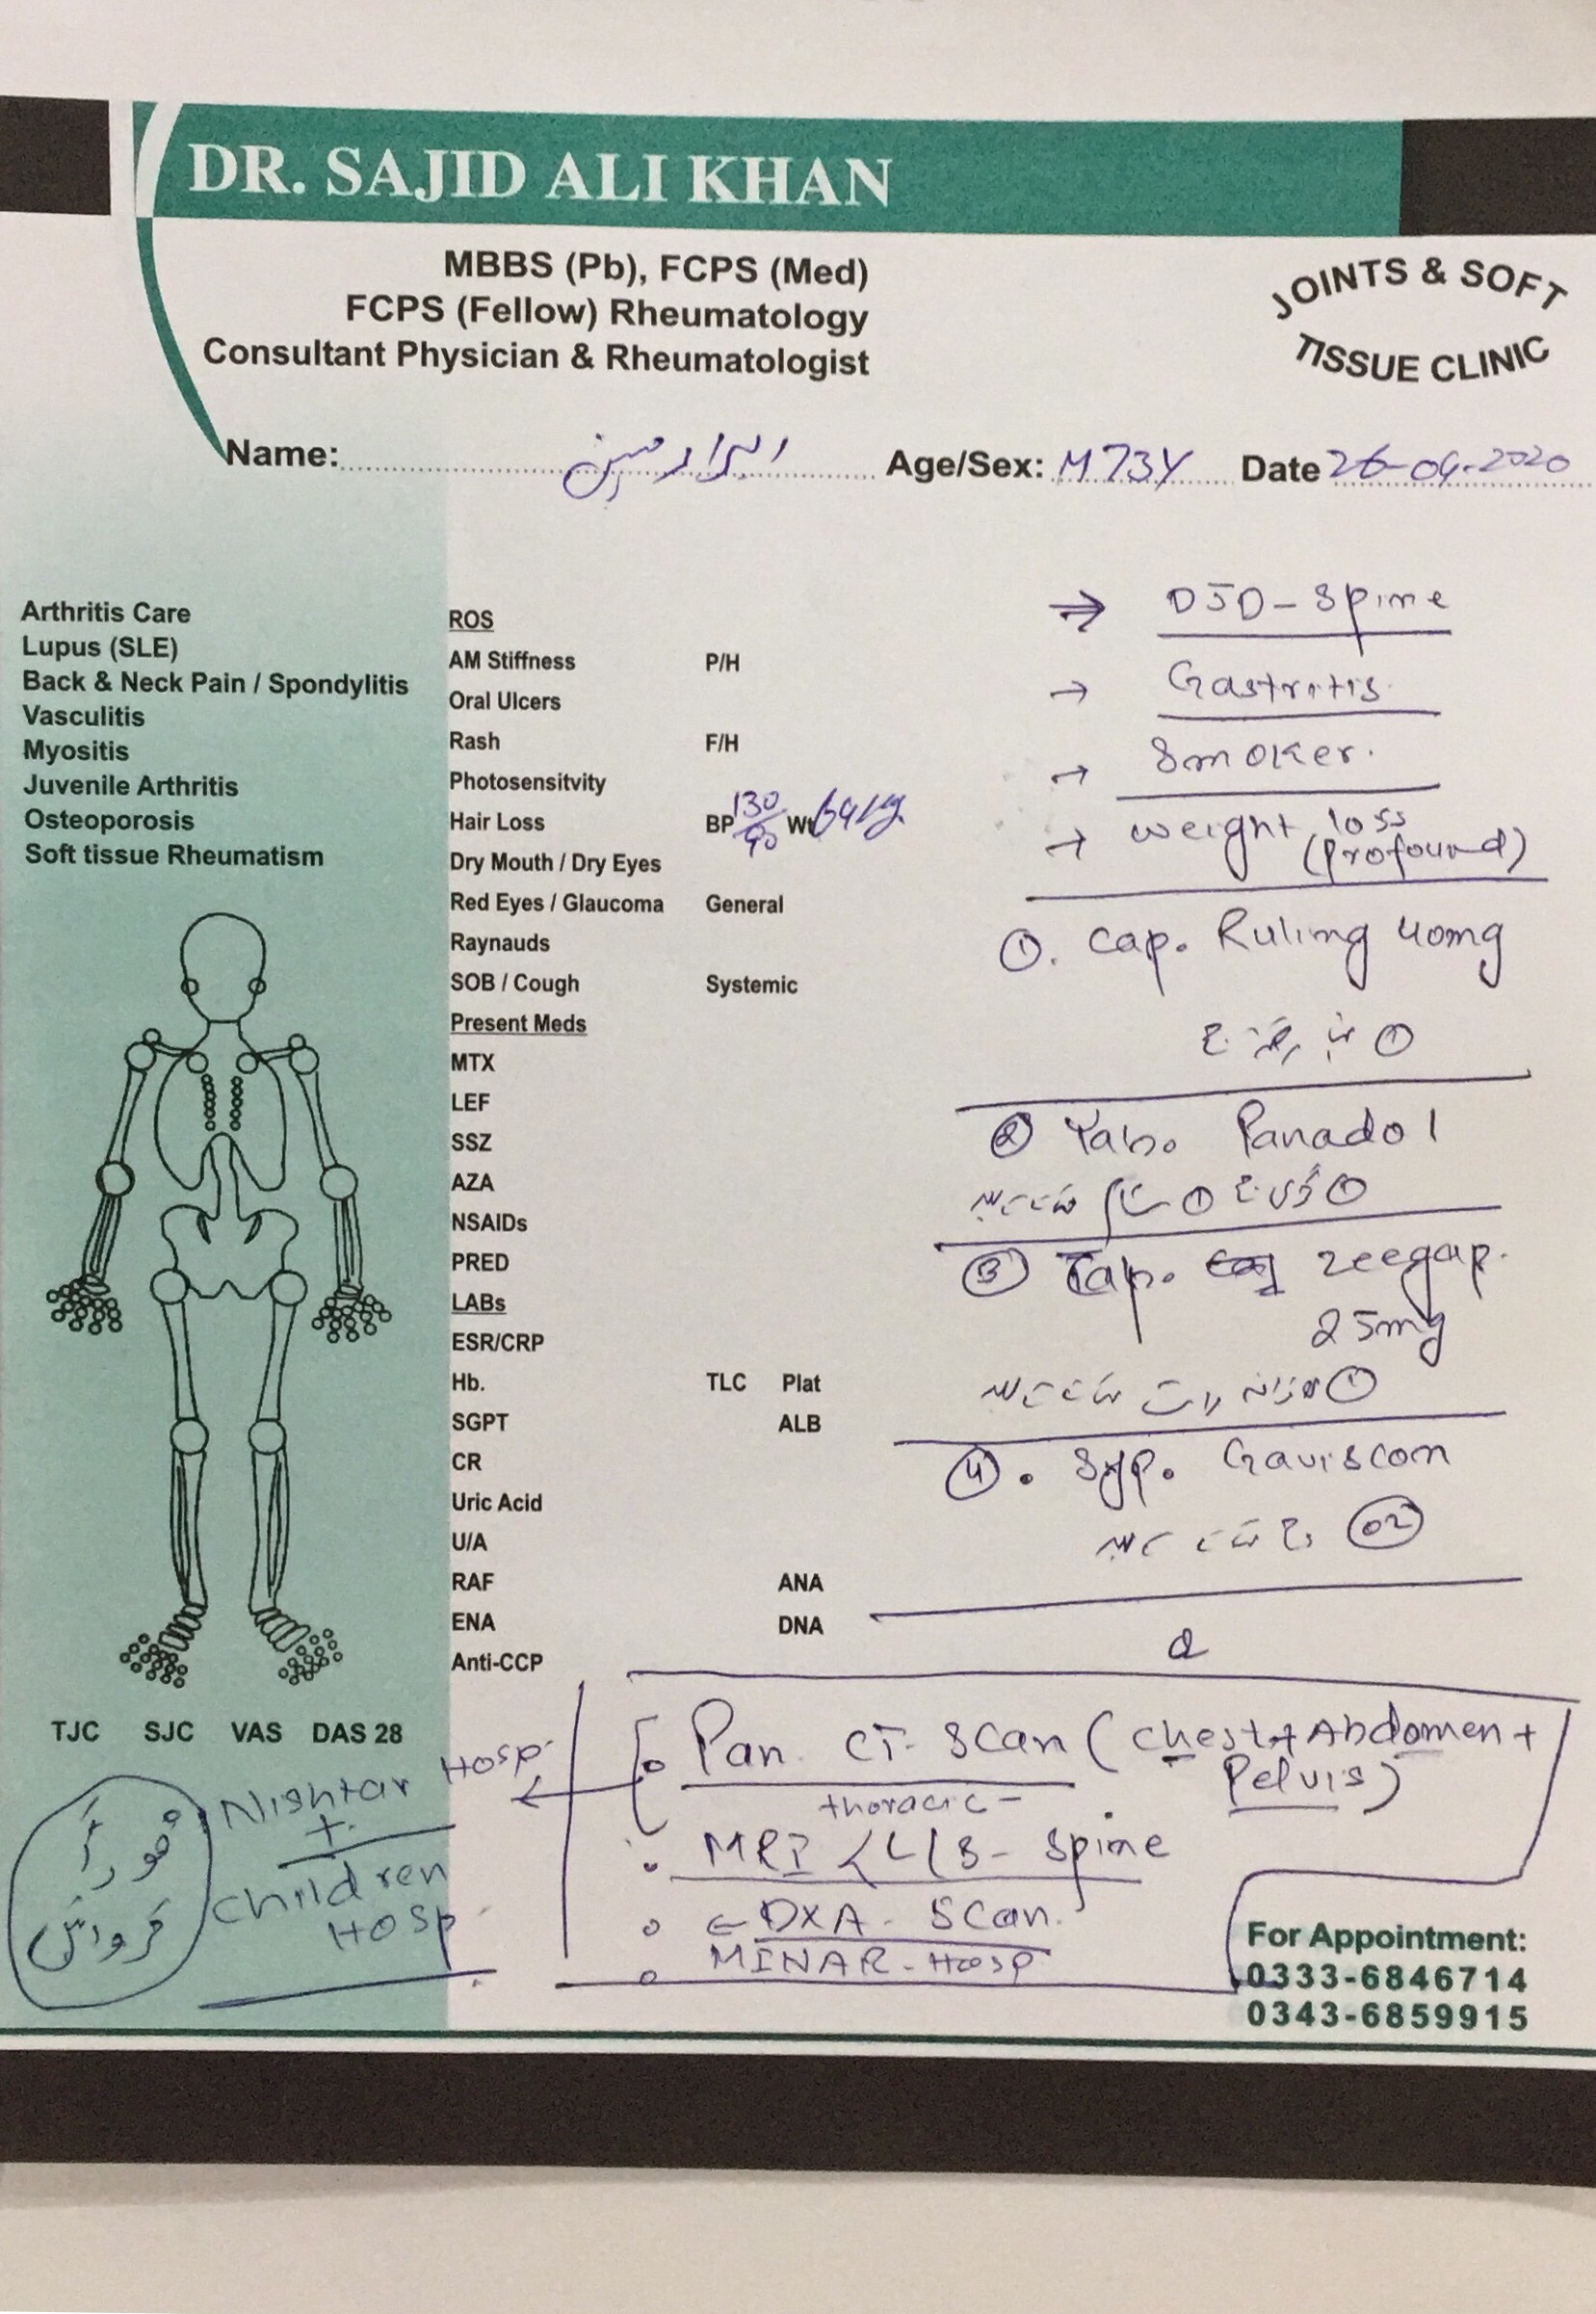 DR. SAJID ALI KHAN
MBBS (Pb), FCPS (Med)
FCPS (Fellow) Rheumatology
Consultant Physician & Rheumatologist
JOINTS & SOFT
TISSUE CLINIC
Name: Age/Sex: M 73Y Date 26-04-2020
Arthritis Care
Lupus (SLE)
Back & Neck Pain / Spondylitis
Vasculitis
Myositis
Juvenile Arthritis
Osteoporosis
Soft tissue Rheumatism
TJC SJC VAS DAS 28
ROS
AM Stiffness P/H
Oral Ulcers
Rash F/H
Photosensitvity
Hair Loss BP 130/90 Wt 64kg
Dry Mouth / Dry Eyes
Red Eyes / Glaucoma General
Raynauds
SOB / Cough Systemic
Present Meds
MTX
LEF
SSZ
AZA
NSAIDs
PRED
LABs
ESR/CRP
Hb. TLC Plat
SGPT ALB
CR
Uric Acid
U/A
RAF ANA
ENA DNA
Anti-CCP
⇒ DJD - Spine
→ Gastritis
→ Smoker.
→ weight loss
(Profound)
①. Cap. Ruling 40mg
①
② Tab. Panadol
① ①
③ Cap. zeegap.
25mg
①
④. Syp. Gaviscon
02
Pan. CT- Scan (Chest + Abdomen +
Pelvis)
thoracic -
MRI L/S - Spine
DXA - Scan.
MINAR - Hosp
Nishtar Hosp.
+
Children
Hosp
فوراً
کروائیں
For Appointment:
0333-6846714
0343-6859915